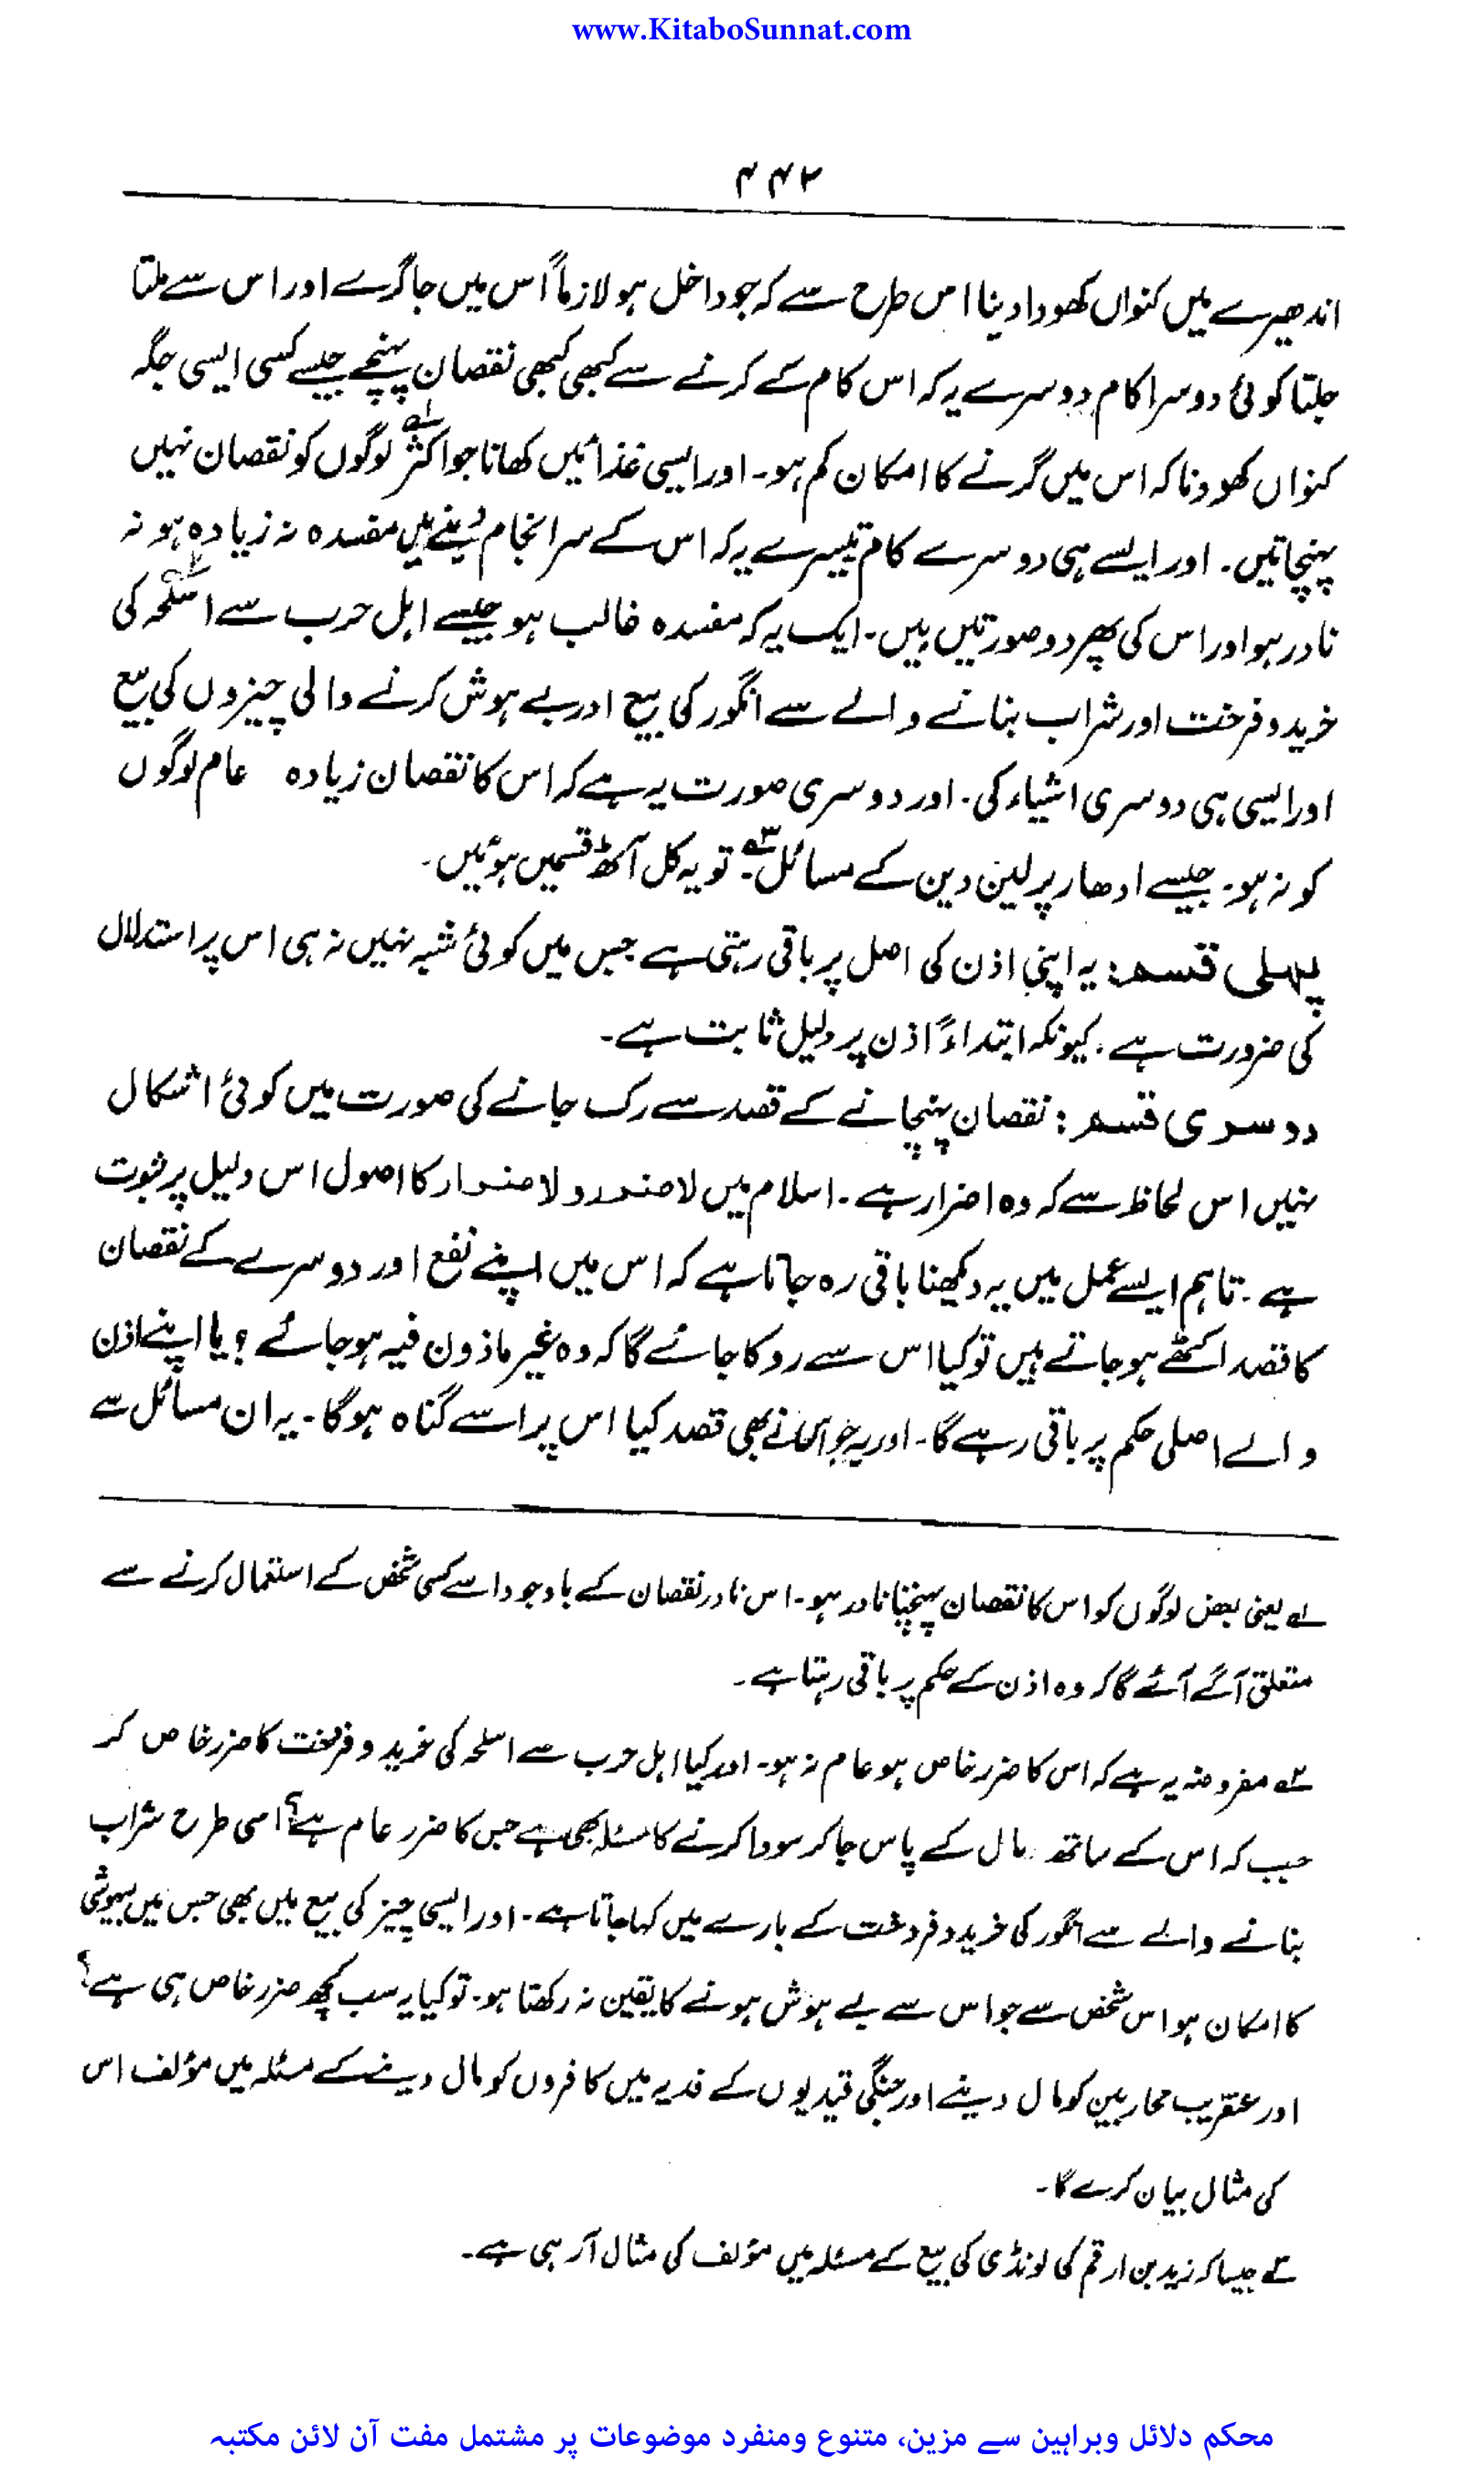 www.KitaboSunnat.com
۴۴۲
اندھیرے میں کنواں کھودا دینا اس طرح سے کہ جو داخل ہو لازماً اس میں جا گرے اور اس سے ملتا
جلتا کوئی دوسرا کام دوسرے یہ کہ اس کام کے کرنے سے کبھی کبھی نقصان پہنچے جیسے کسی ایسی جگہ
کنواں کھودنا کہ اس میں گرنے کا امکان کم ہو۔ اور ایسی غذائیں کھانا جو اکثر لہ لوگوں کو نقصان نہیں
پہنچاتیں۔ اور ایسے ہی دوسرے کام تیسرے یہ کہ اس کے سرانجام دینے میں مفسدہ نہ زیادہ ہو نہ
نادر ہو اور اس کی پھر دو صورتیں ہیں۔ ایک یہ کہ مفسدہ غالب ہو جیسے اہل حرب سے اسلحہ کی
خرید و فرخت اور شراب بنانے والے سے انگور کی بیع اور بے ہوش کرنے والی چیزوں کی بیع
اور ایسی ہی دوسری اشیاء کی۔ اور دوسری صورت یہ ہے کہ اس کا نقصان زیادہ عام لوگوں
کو نہ ہو۔ جیسے ادھار پر لین دین کے مسائل ۳ہ۔ تو یہ کل آٹھ قسمیں ہوئیں۔
پہلی قسم: یہ اپنی اذن کی اصل پر باقی رہتی ہے جس میں کوئی شبہ نہیں نہ ہی اس پر استدلال
کی ضرورت ہے، کیونکہ ابتداءً اذن پر دلیل ثابت ہے۔
دوسری قسم: نقصان پہنچانے کے قصد سے رک جانے کی صورت میں کوئی اشکال
نہیں اس لحاظ سے کہ وہ اضرار ہے۔ اسلام میں لا ضرر ولا ضرار کا اصول اس دلیل پر ثبوت
ہے۔ تاہم ایسے عمل میں یہ دیکھنا باقی رہ جاتا ہے کہ اس میں اپنے نفع اور دوسرے کے نقصان
کا قصد اکٹھے ہو جاتے ہیں تو کیا اس سے روکا جائے گا کہ وہ غیر ماذون فیہ ہو جائے؟ یا اپنے اذن
والے اصلی حکم پر باقی رہے گا۔ اور یہ جو اس نے بھی قصد کیا اس پر اسے گناہ ہوگا۔ یہ ان مسائل سے
لہ یعنی بعض لوگوں کو اس کا نقصان پہنچنا نادر ہو۔ اس نادر نقصان کے باوجود اسے کسی شخص کے استعمال کرنے سے
متعلق آگے آئے گا کہ وہ اذن کے حکم پر باقی رہتا ہے۔
۲ہ مفروضہ یہ ہے کہ اس کا ضرر خاص ہو عام نہ ہو۔ اور کیا اہل حرب سے اسلحہ کی خرید و فروخت کا ضرر خاص کر
جب کہ اس کے ساتھ مال کے پاس جا کر سودا کرنے کا مسئلہ بھی ہے جس کا ضرر عام ہے؟ اسی طرح شراب
بنانے والے سے انگور کی خرید و فروخت کے بارے میں کہا جاتا ہے۔ اور ایسی چیز کی بیع میں بھی جس میں بیہوشی
کا امکان ہو اس شخص سے جو اس سے بے ہوش ہونے کا یقین نہ رکھتا ہو۔ تو کیا یہ سب کچھ ضرر خاص ہی ہے؟
اور عنقریب محاربین کو مال دینے اور جنگی قیدیوں کے فدیہ میں کافروں کو مال دینے کے مسئلہ میں مؤلف اس
کی مثال بیان کرے گا۔
۳ہ جیسا کہ زید بن ارقم کی لونڈی کی بیع کے مسئلہ میں مؤلف کی مثال آرہی ہے۔
محکم دلائل وبراہین سے مزین، متنوع ومنفرد موضوعات پر مشتمل مفت آن لائن مکتبہ